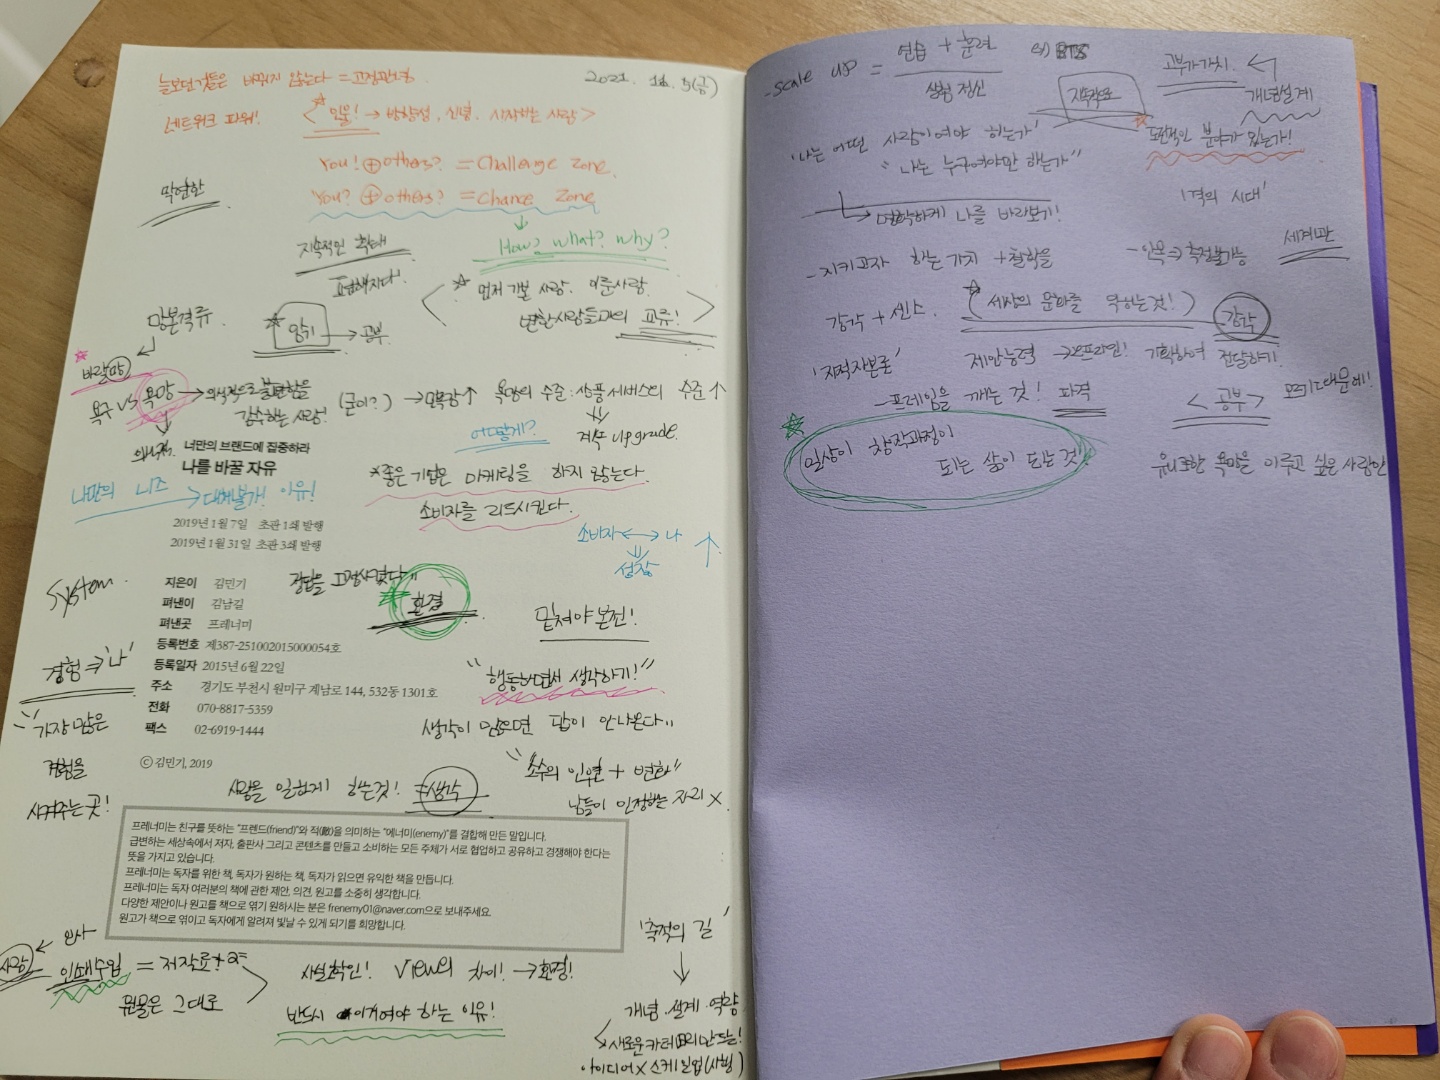 늘보던것들은 바뀌지 않는다 = 고정관념.
2021. 11. 5(금)
네트워크 파워!
<인물! → 방향성, 신념, 시작하는 사람>
You! ⊕ others? = Challenge Zone.
You? ⊕ others? = Chance Zone
막연한
지속적인 확대
How? what? why?
먼저 가본 사람. 이룬사람.
변한사람들과의 교류!
망본격류.
암기 → 공부
바랄망
욕구 VS 욕망 → 의식적으로 불편함을
감수하는 사람!
(굳이?) → 만족감↑ 욕망의 수준 : 상품 서비스의 수준↑
계속 upgrade.
어떻게?
너만의 브랜드에 집중하라
나를 바꿀 자유
나만의 니즈 → 대체불가! 이유!
*좋은 기업은 마케팅을 하지 않는다.
소비자를 리드시킨다.
2019년 1월 7일 초판 1쇄 발행
2019년 1월 31일 초판 3쇄 발행
소비자 ↔ 나 ↑
성장
System.
지은이 김민기
펴낸이 김남길
펴낸곳 프레너미
등록번호 제387-251002015000054호
등록일자 2015년 6월 22일
주소 경기도 부천시 원미구 계남로 144, 532동 1301호
전화 070-8817-5359
팩스 02-6919-1444
환경
밑져야 본전!
경험 ⇒ '나'
"행동하면서 생각하기!"
가장 많은
경험을
시켜주는 곳!
생각이 많으면 답이 안나온다"
ⓒ 김민기, 2019
사람을 일하게 하는것! = 생각
"소수의 인원 + 변화"
남들이 인정하는 자리 X.
프레너미는 친구를 뜻하는 "프렌드(friend)"와 적(敵)을 의미하는 "에너미(enemy)"를 결합해 만든 말입니다.
급변하는 세상속에서 저자, 출판사 그리고 콘텐츠를 만들고 소비하는 모든 주체가 서로 협업하고 공유하고 경쟁해야 한다는
뜻을 가지고 있습니다.
프레너미는 독자를 위한 책, 독자가 원하는 책, 독자가 읽으면 유익한 책을 만듭니다.
프레너미는 독자 여러분의 책에 관한 제안, 의견, 원고를 소중히 생각합니다.
다양한 제안이나 원고를 책으로 엮기 원하시는 분은 frenemy01@naver.com으로 보내주세요.
원고가 책으로 엮이고 독자에게 알려져 빛날 수 있게 되기를 희망합니다.
사람 ← 인사
인쇄수입 = 저작료+2쇄
원물은 그대로
사실확인! View의 차이! → 환경!
반드시 이겨여야 하는 이유!
'축적의 길'
개념.설계 역량
새로운 카테고리 만드는!
아이디어 X 스케일업(시행)
-Scale up = 연습 + 훈련
실험 정신
ex) BTS
고부가가치. ←
개념설계
지속적으로
도전적인 분야가 있는가!
'나는 어떤 사람이여야 하는가'
"나는 누구여야만 하는가"
→ 명확하게 나를 바라보기!
'격의 시대'
- 지키고자 하는 가치 + 철학을
- 안목 ⇒ 측정불가능
세계관
감각 + 센스.
(세상의 문화를 덕하는것!)
감각
'지적자본론'
제안능력 → 오프라인! 기획하여 전달하기!
-프레임을 깨는 것! 파격
<공부> 모르기때문에!
일상이 창작과정이
되는 삶이 되는것!
유니크한 욕망을 이루고 싶은 사람만